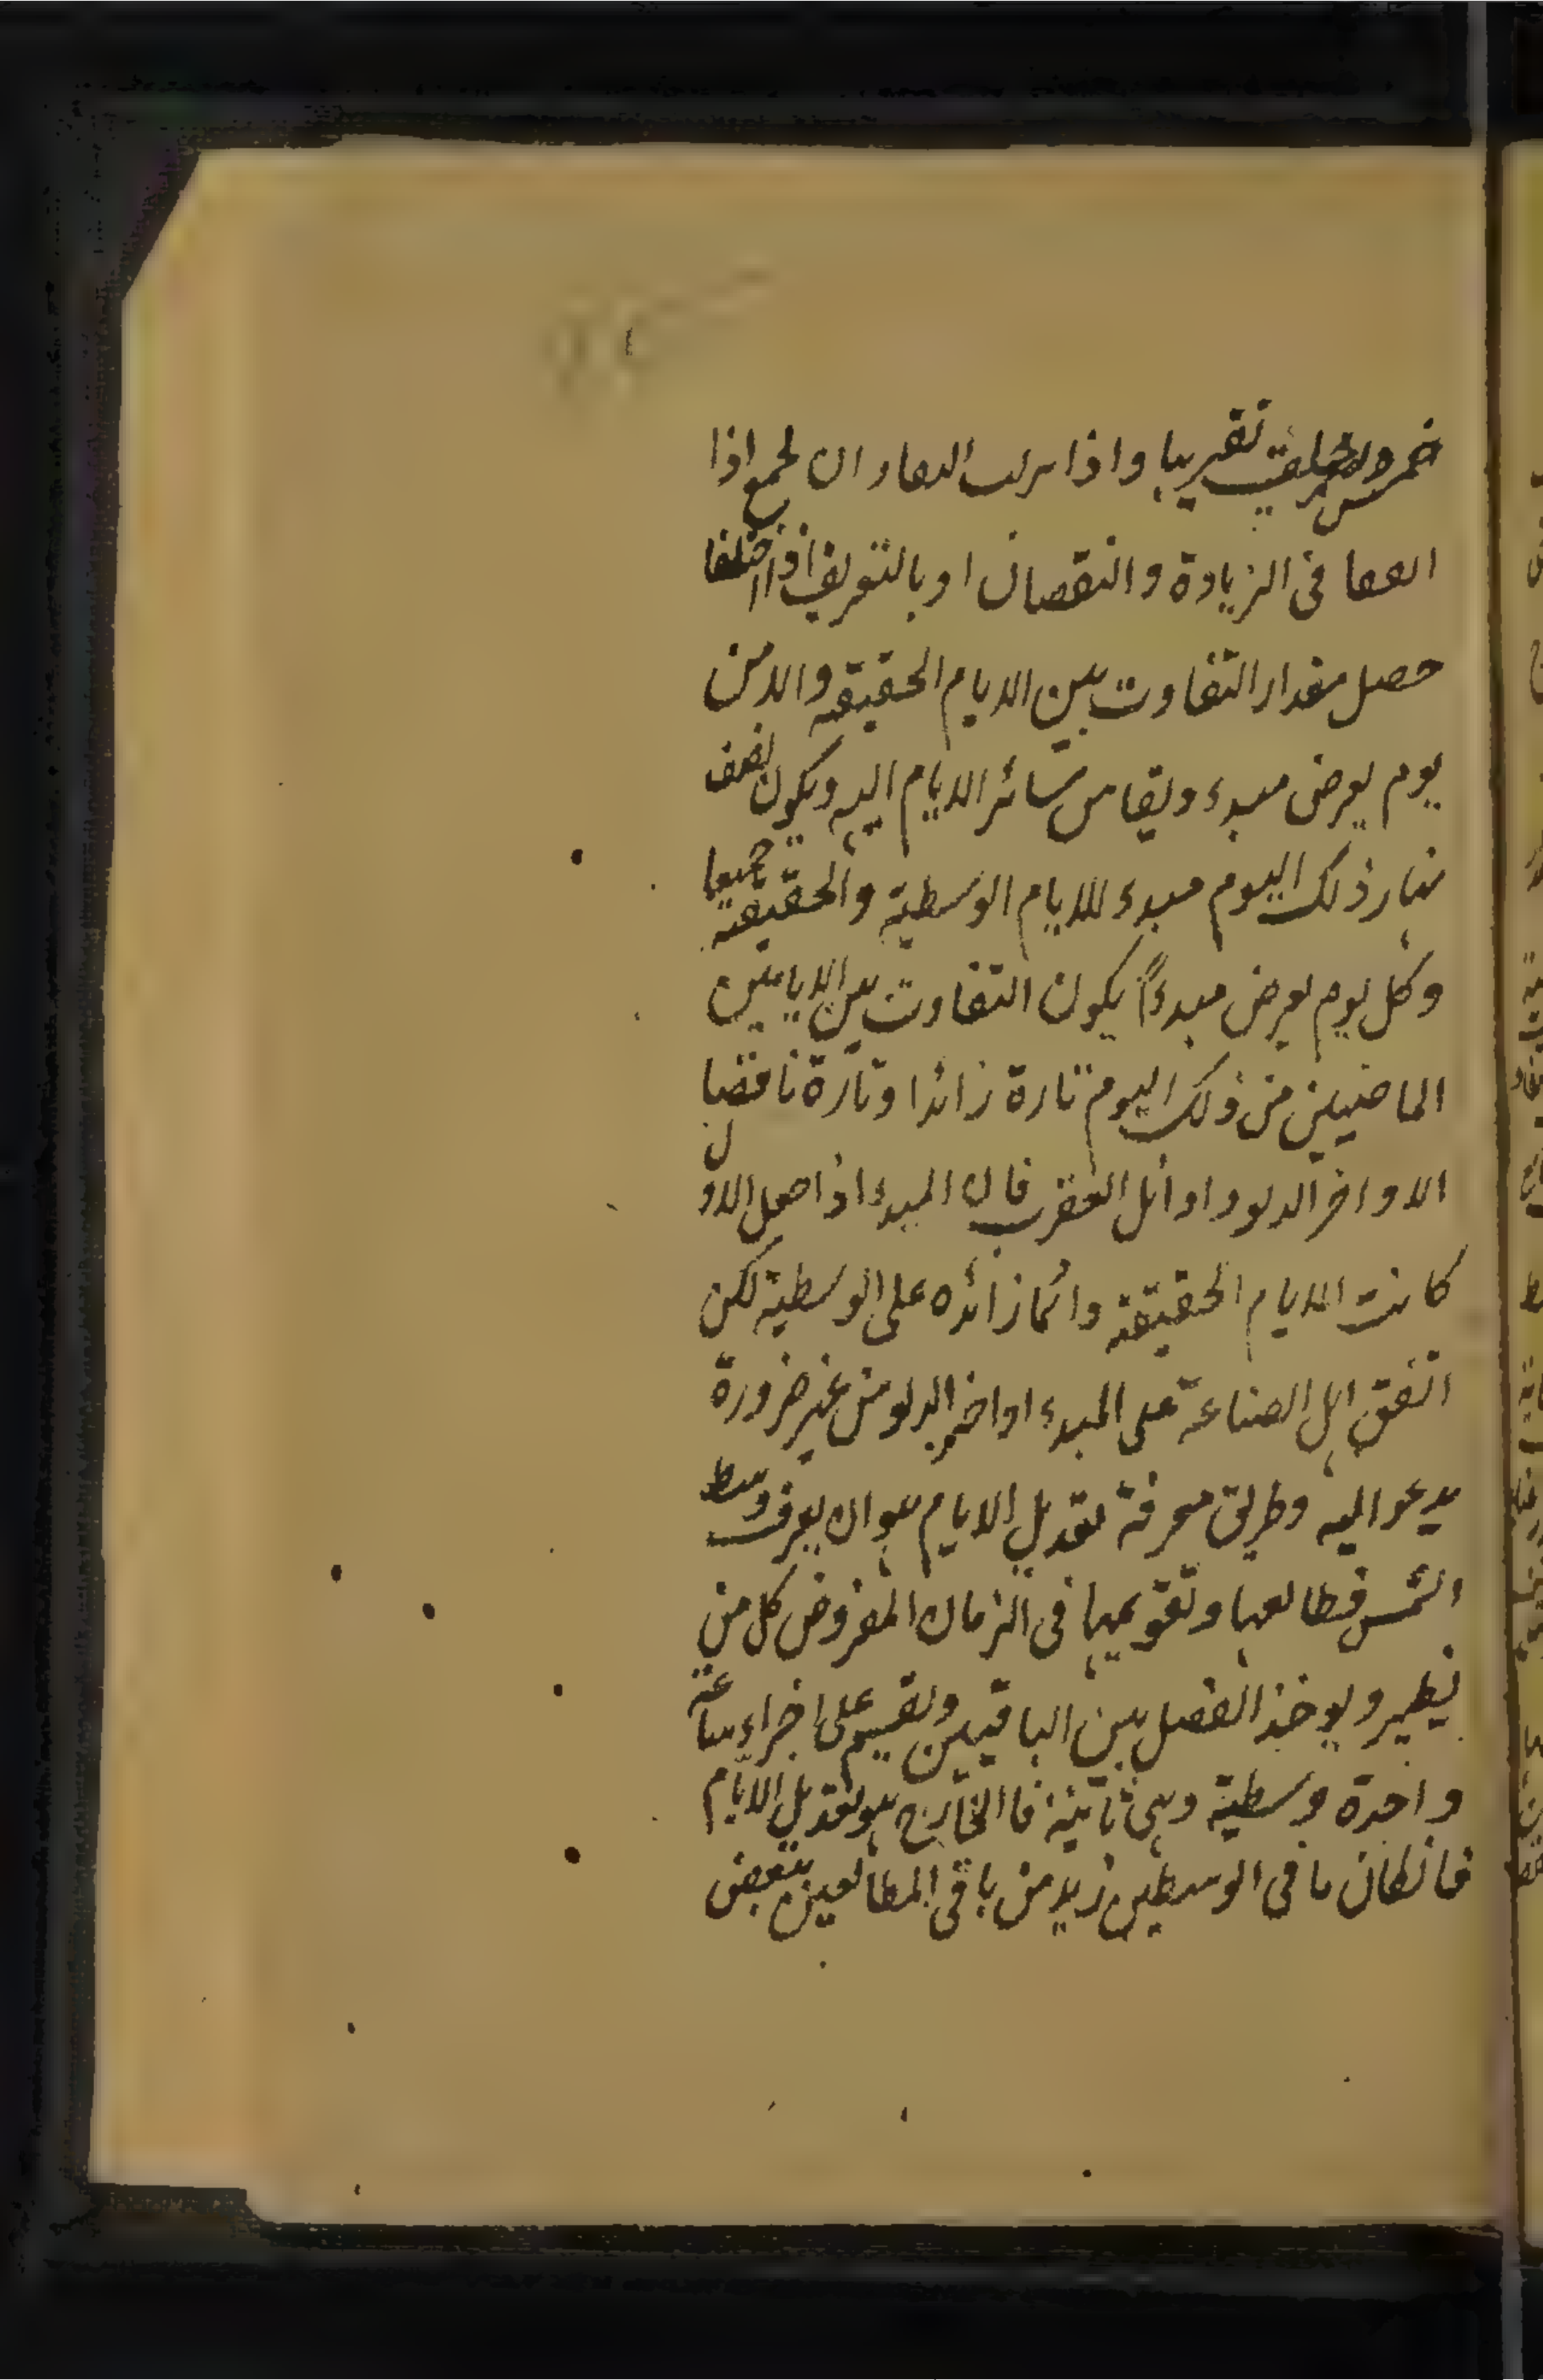 تقريبا واذا اذا
فى الزيادة والنقصان او بالتفريق اذا اختلفا
حصل مقدار التفاوت بين الايام الحقيقه والا من
يوم يعرض مبدء ويقاس سائر الايام اليه ويكون نصف
نهار ذلك اليوم مبدء للايام الوسطية والحقيقية جميعا
وكل يوم يعرض مبدءً يكون التفاوت بين الايامين
الماضيين من ذلك اليوم تارة زائدا وتارة ناقصا
الا اواخر الدلو واوائل العقرب فان المبدء اذا جعل الاول
كانت الايام الحقيقية دائما زائده على الوسطية لكن
اتفق اهل الصناعة على المبدء اواخر الدلو من غير ضرورة
يدعو اليه وطريق معرفة تعديل الايام هو ان يعرف وسط
الشمس فطالعها وتقويمها فى الزمان المفروض كل من
نظير ويوخذ الفضل بين الباقيين ويقسم على اجزاء ساعة
واحدة وسطية وهى ثانية فاالخارج هو تعديل الايام
فانكان ما فى الوسطين زيد من باقى المطالعين ينقص